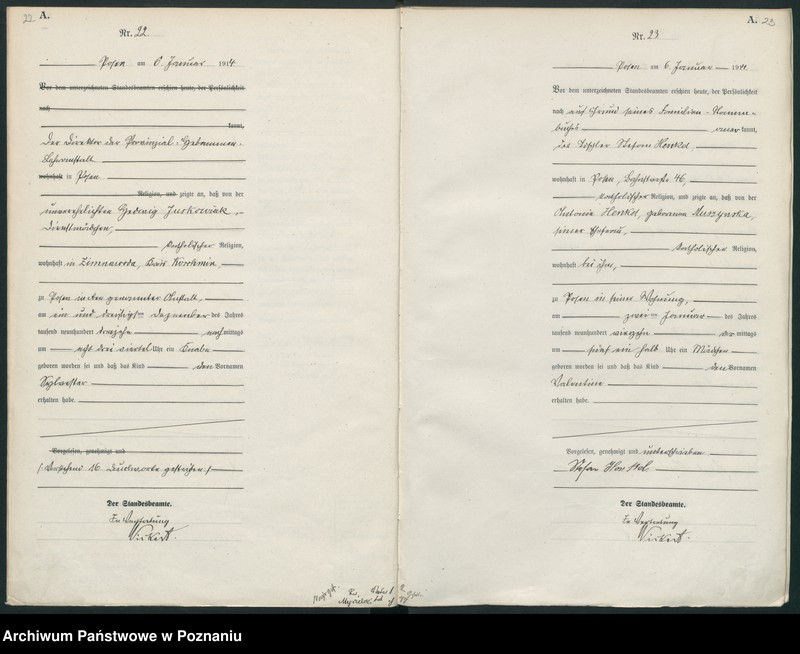 22 A.
Nr. 22
Posen am 6. Januar 1914
Vor dem unterzeichneten Standesbeamten erschien heute, der Persönlichkeit
nach
kannt,
Der Direktor der Provinzial-Hebammen-
Lehranstalt
wohnhaft in Posen
Religion, und zeigte an, daß von der
unverehelichten Hedwig Juskowiak,
Dienstmädchen,
katholischer Religion,
wohnhaft in
zu Posen in der genannten Anstalt,
am ein und dreißigsten Dezember des Jahres
tausend neunhundert dreizehn nachmittags
um acht drei viertel Uhr ein Knabe
geboren worden sei und daß das Kind den Vornamen
Sylvester
erhalten habe.
Vorgelesen, genehmigt und
(Vorstehend 16 Druckworte gestrichen.)
Der Standesbeamte.
In Vertretung
A. 23
Nr. 23
Posen am 6. Januar 1914.
Vor dem unterzeichneten Standesbeamten erschien heute, der Persönlichkeit
nach auf Grund seines Familien-Stamm-
buches anerkannt,
der Tischler Stefan
wohnhaft in Posen, 46,
katholischer Religion, und zeigte an, daß von der
Antonie geborenen Muszynska,
seiner Ehefrau,
katholischer Religion,
wohnhaft bei ihm,
zu Posen in seiner Wohnung,
am zweiten Januar des Jahres
tausend neunhundert vierzehn vormittags
um fünf ein halb Uhr ein Mädchen
geboren worden sei und daß das Kind den Vornamen
Valentine
erhalten habe.
Vorgelesen, genehmigt und unterschrieben
Stefan
Der Standesbeamte.
In Vertretung
Archiwum Państwowe w Poznaniu